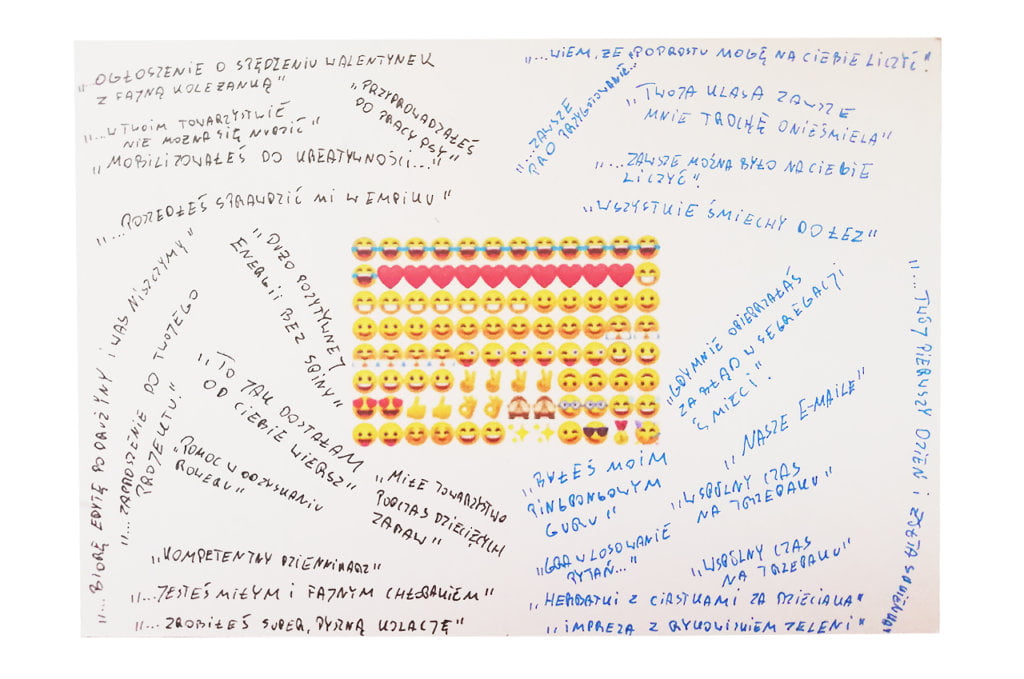 "...OGŁOSZENIE O SPĘDZENIU WALENTYNEK
Z FAJNĄ KOLEŻANKĄ"
"...W TWOIM TOWARZYSTWIE
NIE MOŻNA SIĘ NUDZIĆ"
"MOBILIZOWAŁEŚ DO KREATYWNOŚCI..."
"PRZYPROWADZAŁEŚ
DO PRACY PSY"
"...POSZEDŁEŚ SPRAWDZIĆ MI W EMPIKU"
"...BIORĘ EDYTĘ PO DRUŻYNY I WAS NISZCZYMY"
"...ZAPROSZENIE DO TWOJEGO
PROJEKTU."
"DUŻO POZYTYWNEJ
ENERGII BEZ SPINY"
"TO JAK DOSTAŁAM
OD CIEBIE WIERSZ"
"POMOC W ODZYSKANIU
ROWERU"
"MIŁE TOWARZYSTWO
PODCZAS DZIECIĘCYCH
ZABAW"
"KOMPETENTNY DZIENNIKARZ"
"...JESTEŚ MIŁYM I FAJNYM CHŁOPAKIEM"
"...ZROBIŁEŚ SUPER, PYSZNĄ KOLACJĘ"
"...WIEM, ŻE POPROSTU MOGĘ NA CIEBIE LICZYĆ".
"...ZAWSZE
PRO PRZYGOTOWANIE..."
"TWOJA KLASA ZAWSZE
MNIE TROCHĘ ONIEŚMIELA"
"...ZAWSZE MOŻNA BYŁO NA CIEBIE
LICZYĆ".
"WSZYSTKIE ŚMIECHY DO ŁEZ"
"GDY MNIE OPIERZAŁAŚ
ZA BŁĄD W SEGREGACJI
ŚMIECI".
"NASZE E-MAILE"
"...TWÓJ PIERWSZY DZIEŃ I ŻÓŁTA SUKIENKA"
"BYŁEŚ MOIM
PINGPONGOWYM
GURU"
"WSPÓLNY CZAS
NA TRZEPAKU"
"GRA W LOSOWANIE
PYTAŃ..."
"WSPÓLNY CZAS
NA TRZEPAKU"
"HERBATKI Z CIASTKAMI ZA DZIECIAKA"
"IMPREZA Z RYKOWISKIEM JELENI"